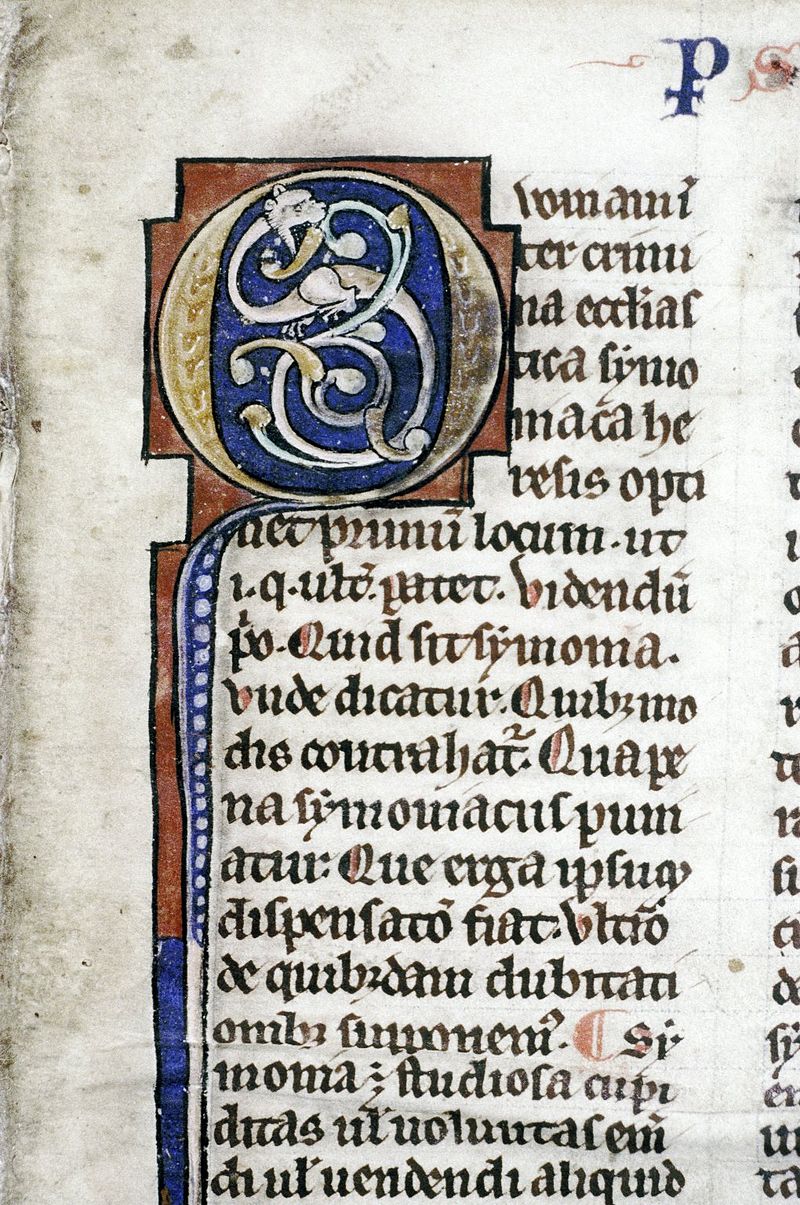 P S
Quoniam int̄
ter crimi
na eccl̄ias
tica symo
niac̄a he
resis opti
net primū locum. ut
i. q. ult̄. patet. Videndū
p̄o. Quid sit symonia.
vnde dicatur. Quibꝫ mo
dis contrahat᷑. Qua pe
na symoniacus puni
atur. Que erga ipsūqꝫ
dispensatō fiat. vltīo
de quibꝫdam dubitati
onibꝫ supponem᷒. ¶ Sy
monia ē studiosa cupi
ditas uł uoluntas em̄
di uł uendendi aliquid